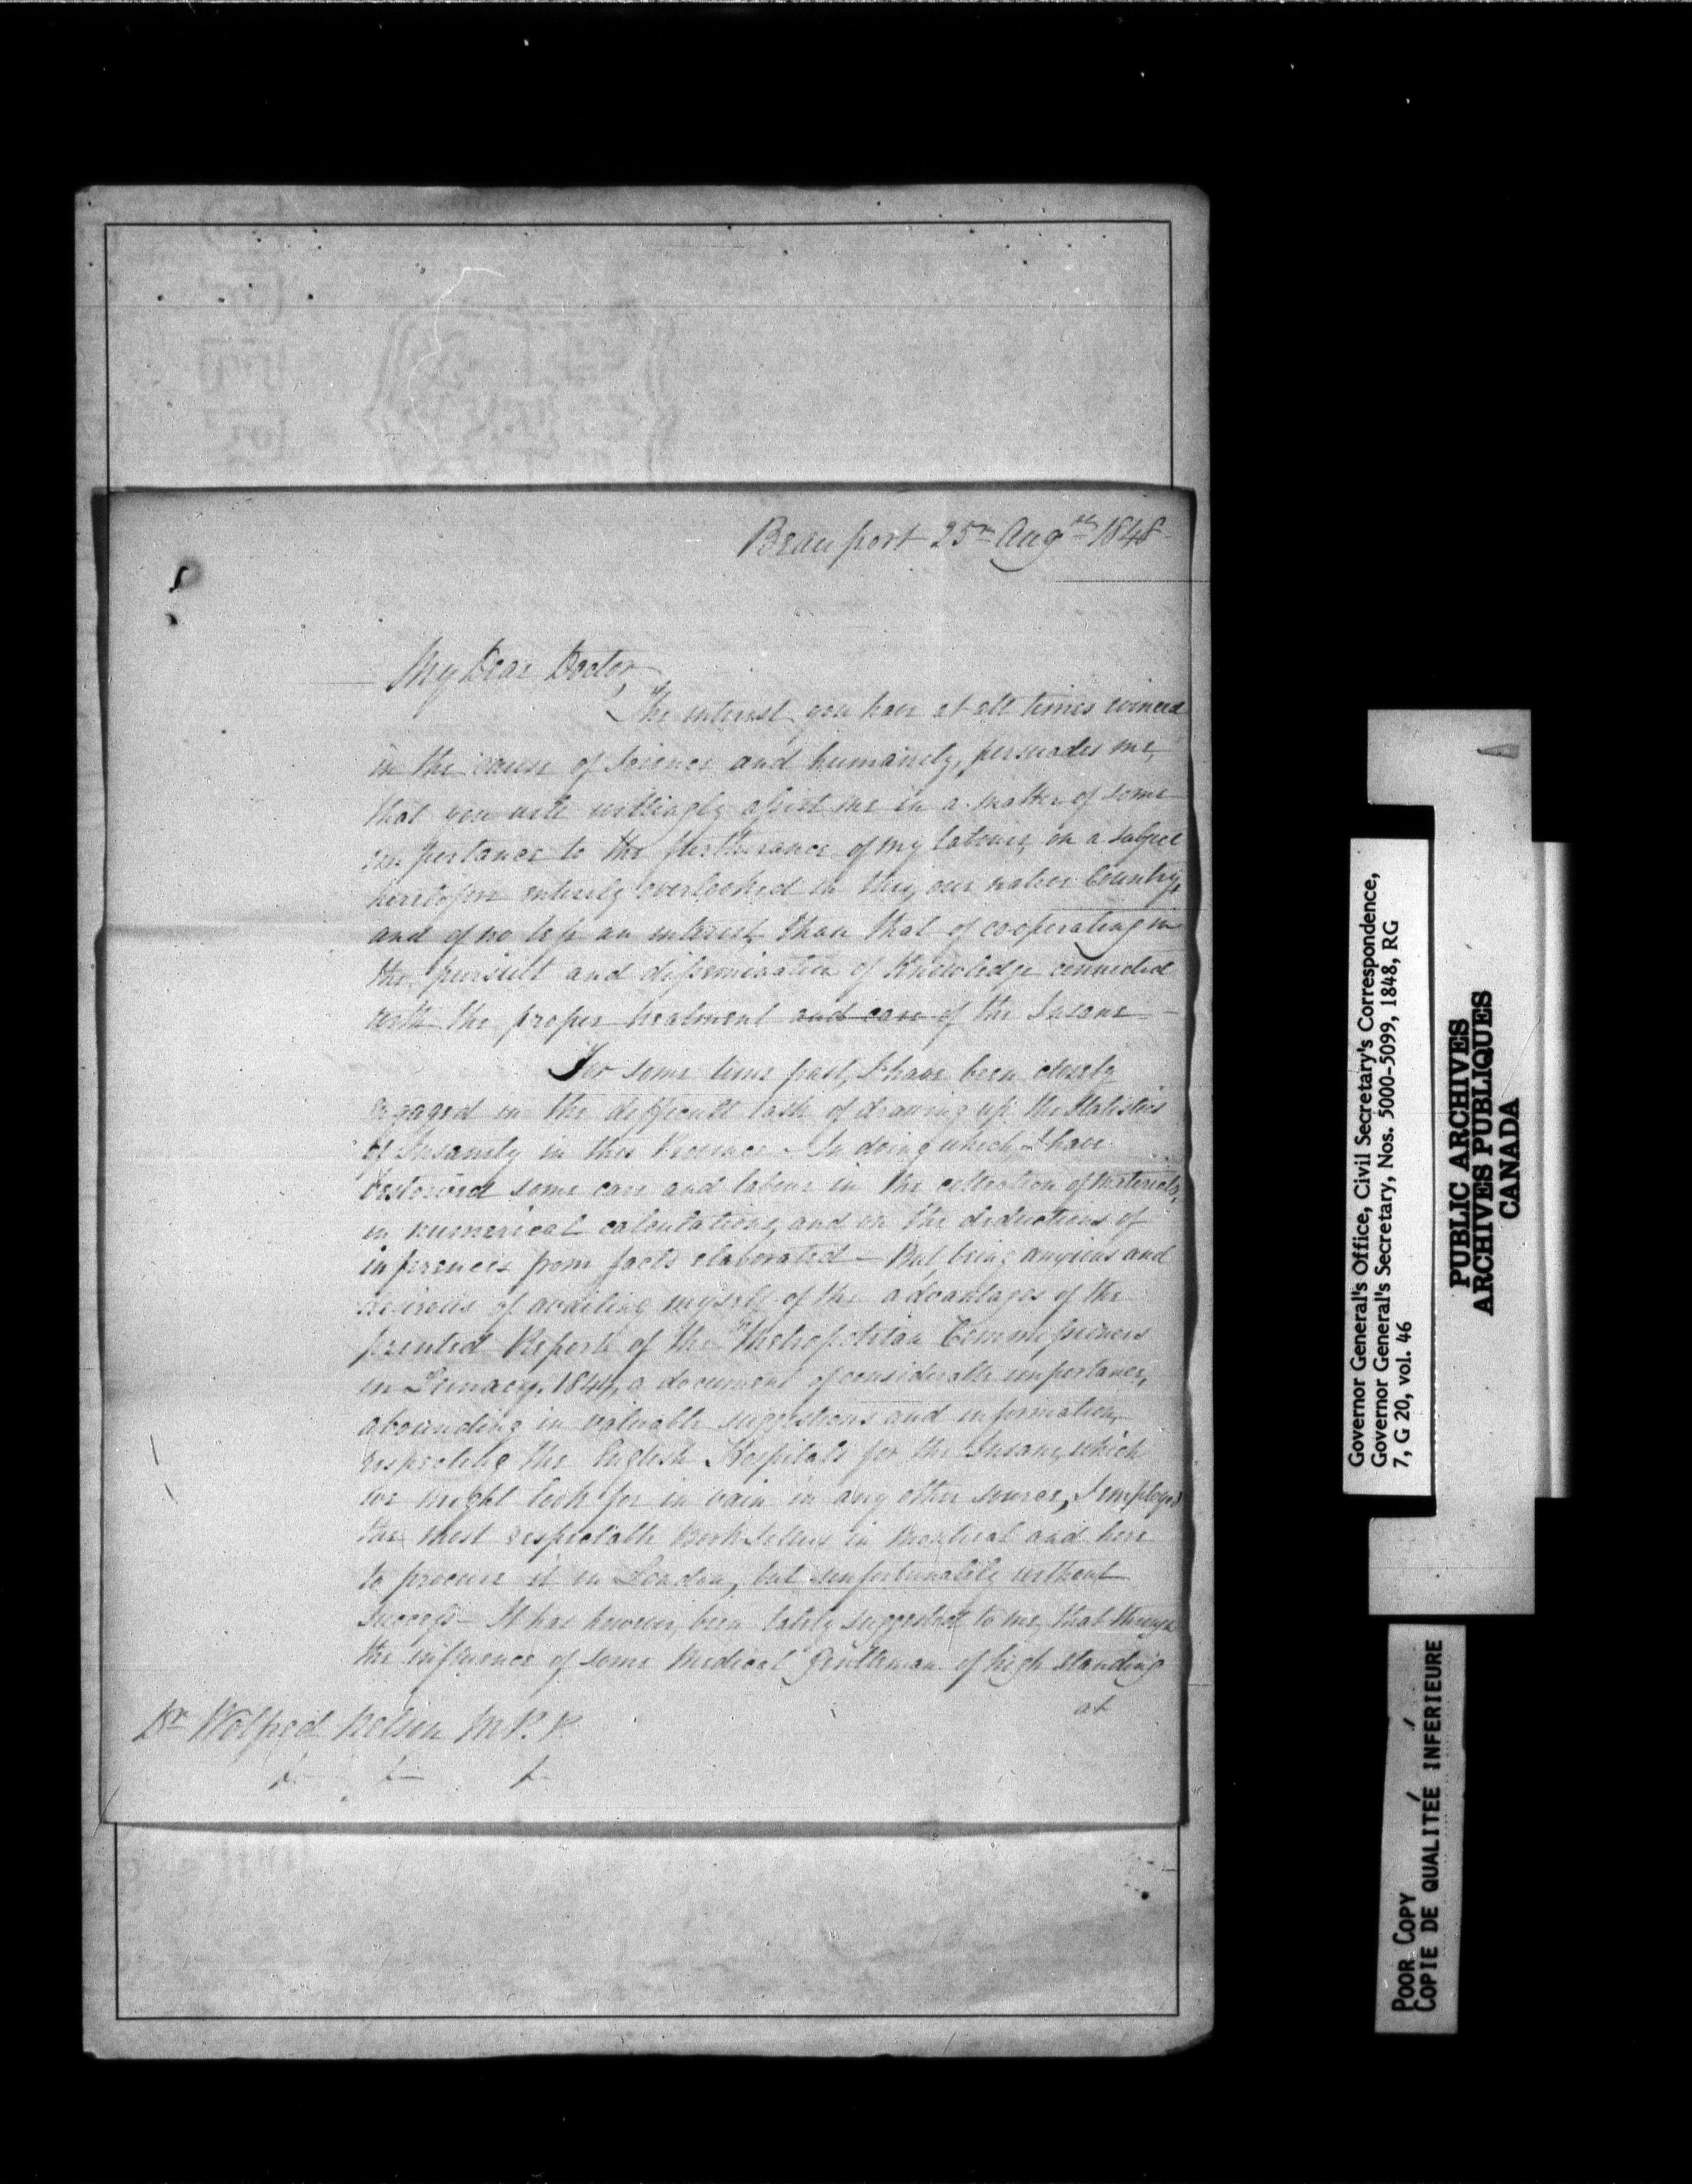 Beauport 25th Augst 1848
My Dear Doctor,
The interest you have at all times evinced
in the cause of Science and humanity, persuades me,
that you will willingly assist me in a matter of some
importance to the furtherance of my labours, on a subject
heretofore entirely overlooked in this, our native Country,
and of no less an interest, than that of cooperating in
the pursuit and dissemination of Knowledge connected
with the proper treatment and care of the Insane —
For some time past, I have been closely
engaged in the difficult task of drawing up the Statistics
of Insanity in this Province — In doing which, I have
bestowed some care and labour in the collection of materials,
in numerical calculations, and in the deductions of
inferences from facts elaborated — But being anxious and
desirous of availing myself of the advantages of the
printed Report of the Metropolitan Commissioners
in Lunacy, 1844, a document of considerable importance,
abounding in valuable suggestions and information,
respecting the English Hospitals for the Insane, which
we might look for in vain in any other source, I employed
the most respectable Booksellers in Montreal and here
to procure it in London, but unfortunately without
success — It has however, been lately suggested to me, that through
the influence of some Medical Gentleman of high standing
at
Dr Wolfred Nelson M.P.P.
Governor General's Office, Civil Secretary's Correspondence,
Governor General's Secretary, Nos. 5000-5099, 1848, RG
7, G 20, vol. 46
PUBLIC ARCHIVES
ARCHIVES PUBLIQUES
CANADA
POOR COPY
COPIE DE QUALITÉE INFÉRIEURE